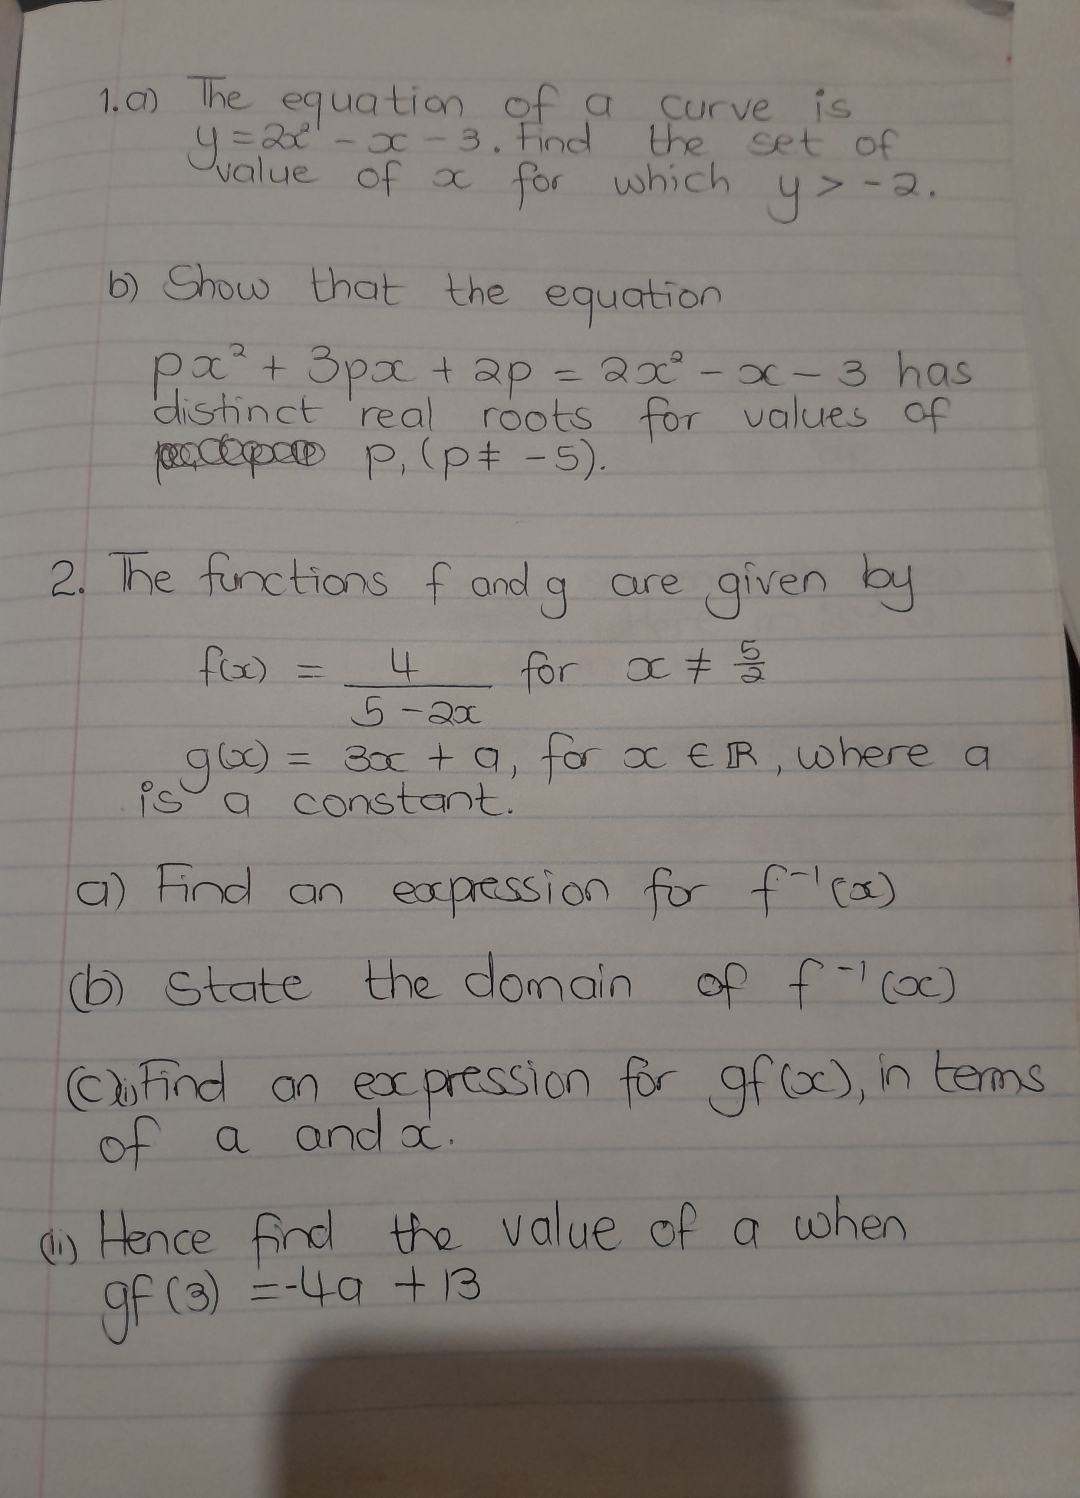 1.a) The equation of a curve is
y = 2x² - x - 3. Find the set of
value of x for which y > -2.
b) Show that the equation
px² + 3px + 2p = 2x² - x - 3 has
distinct real roots for values of
p, (p ≠ -5).
2. The functions f and g are given by
f(x) = 4/(5 - 2x) for x ≠ 5/2
g(x) = 3x + a, for x ∈ ℝ, where a
is a constant.
a) Find an expression for f⁻¹(x)
(b) State the domain of f⁻¹(x)
(c)(i) Find an expression for gf(x), in terms
of a and x.
(ii) Hence find the value of a when
gf(3) = -4a + 13